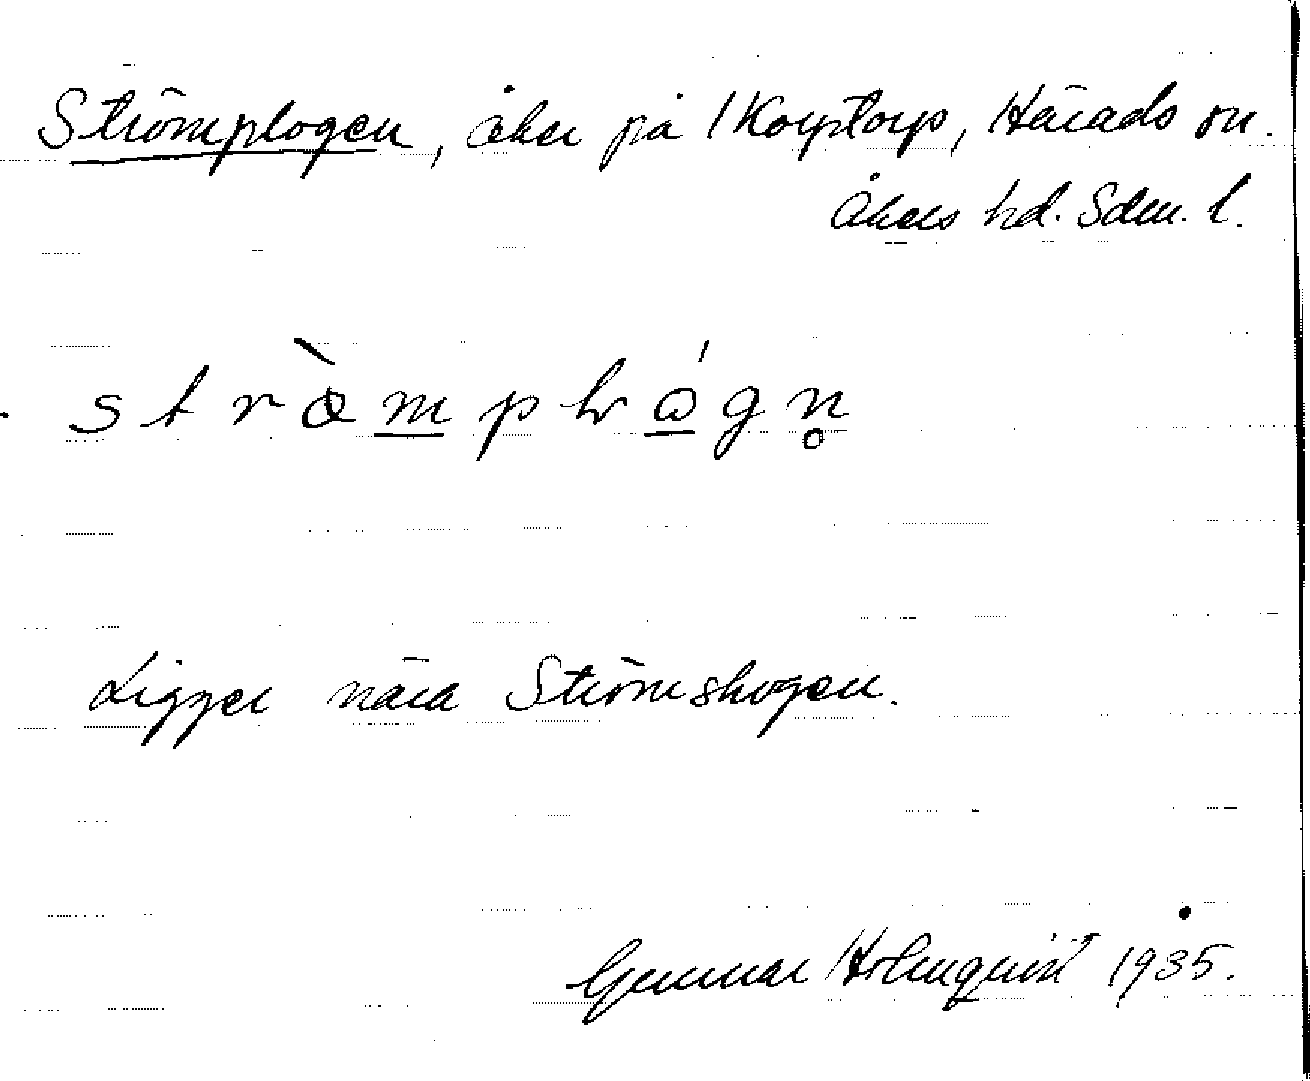 Strömplogen, åker på Korptorp, Härads sn.
Åkers hd. Sdm. l.
Ligger nära Strömskogen.
Gunnar Holmquist 1935.